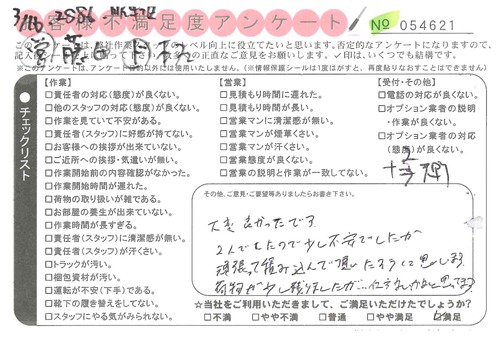 お客様不満足度アンケート
No 054621
このアンケートは、当社作業スタッフのレベル向上に役立てたいと思います。否定的なアンケートになりますので、
※このアンケートは、アンケート目的以外には使用いたしません。(※情報保護シールは1度はがすと、再度貼りなおすことはできません)
チェックリスト
【作業】
□責任者の対応(態度)が良くない。
□他のスタッフの対応(態度)が良くない。
□作業を見ていて不安がある。
□責任者(スタッフ)に好感が持てない。
□お客様への挨拶が出来ていない。
□ご近所への挨拶・気遣いが無い。
□作業開始前の内容確認がなかった。
□作業開始時間が遅れた。
□荷物の取り扱いが雑である。
□お部屋の養生が出来ていない。
□作業時間が長すぎる。
□責任者(スタッフ)に清潔感が無い。
□責任者(スタッフ)が汗くさい。
□トラックが汚い。
□梱包資材が汚い。
□運転が不安(下手)である。
□靴下の履き替えをしてない。
□スタッフにやる気がみられない。
【営業】
□見積もり時間に遅れた。
□見積もり時間が長い。
□営業マンに清潔感が無い。
□営業マンが煙草くさい。
□営業マンが汗くさい。
□営業態度が良くない。
□営業の説明と作業が一致してない。
【受付・その他】
□電話の対応が良くない。
□オプション業者の説明
・作業が良くない。
□オプション業者の対応
(態度)が良くない。
その他、ご意見・ご要望等ありましたらお書き下さい。
大変良かったです
2人でしたので少し不安でしたが
頑張って積み込んで頂いたように思います。
☆当社をご利用いただきまして、ご満足いただけたでしょうか?
□不満 □やや不満 □普通 □やや満足 ☑満足